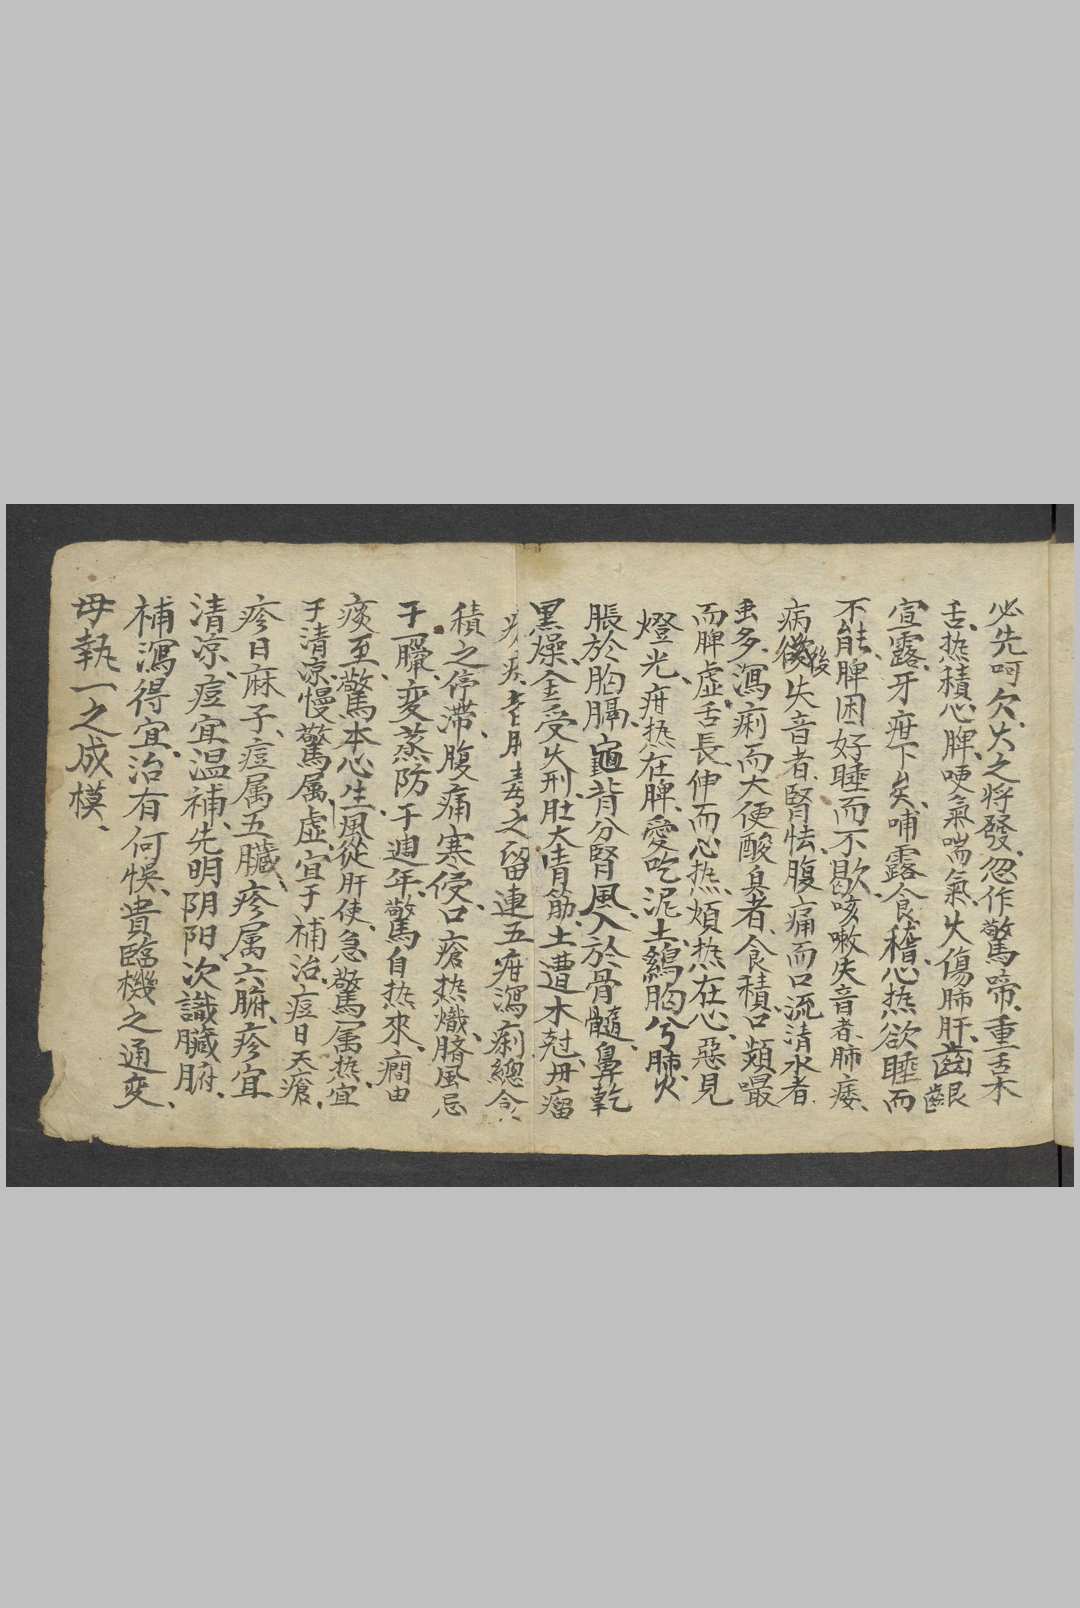 必先呵欠、火之将發、忽作驚啼、重舌木
舌、热積心脾、哽氣喘氣、火傷肺肝、齒齦
宣露、牙疳下矣、哺露食積、心热欲睡而
不能、脾困好睡而不歇、咳嗽失音者、肺痿、
病後失音者、腎怯、腹痛而口流清水者
虫多、瀉痢而大便酸臭者、食積、口頻嘬
而脾虛、舌長伸而心热、煩热在心、惡見
燈光、疳热在脾、愛吃泥土、鷄胸兮肺火
脹於胸膈、龜背分腎風入於骨髓、鼻乾
黑燥、金受火刑、肚大青筋、土遭木尅、丹瘤
毒之留連、五疳瀉痢總合
積之停滯、腹痛寒侵、口瘡热熾、臍風忌
于一臘、変蒸防于週年、驚自热來、癇由
痰至、驚本心生、風從肝使、急驚属热、宜
于清凉、慢驚属虛、宜于補治、痘曰天瘡、
疹曰麻子、痘属五臟、疹属六腑、疹宜
清凉、痘宜温補、先明阴阳、次識臟腑、
補瀉得宜、治有何悞、貴臨機之通変、
毋執一之成模、